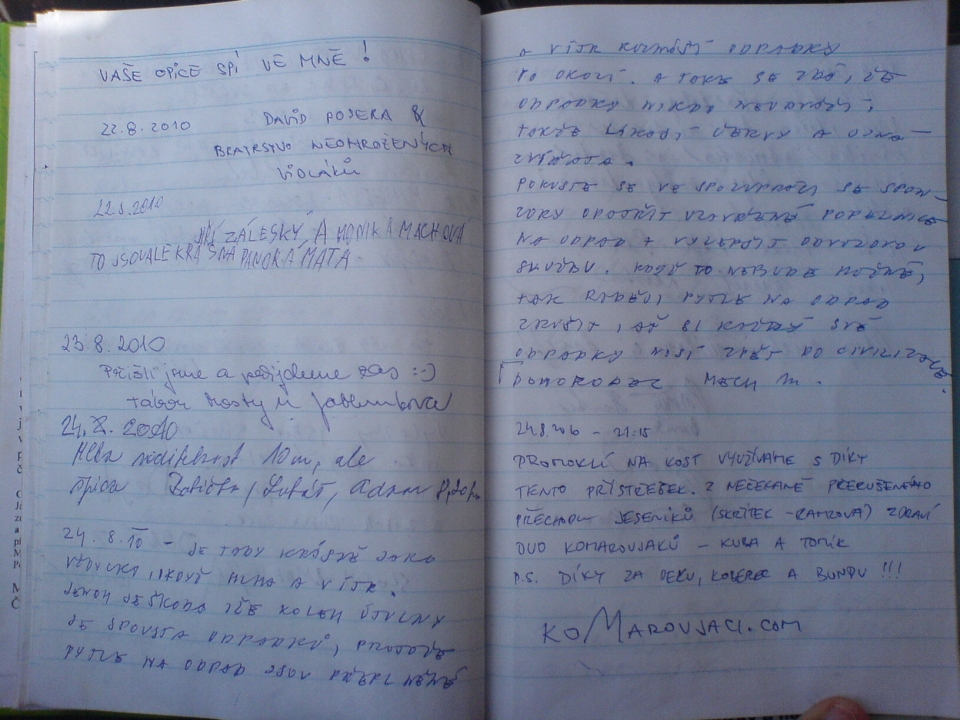 VAŠE OPICE SPÍ VE MNĚ!
22.8.2010 DAVID POJERA &
BRATRSTVO NEOHROŽENÝCH
VIDLÁKŮ
22.8.2010
JIŘÍ ZÁLESKÝ, A MONIKA MACHOVÁ
TO JSOU ALE KRÁSNÁ PANORAMATA
23.8.2010
Přišli jsme a přijdeme zas :-)
tábor Hosty u
24.8.2010
Mlha viditelnost 10m, ale
Babička, Lukáš, Adam
24.8.10 - JE TADY KRÁSNĚ JAKO
VŽDYCKY, I KDYŽ MLHA A VÍTR.
JENOM JE ŠKODA ŽE KOLEM ÚTULNY
JE SPOUSTA ODPADKŮ, PROTOŽE
PYTLE NA ODPAD JSOU PŘEPLNĚNÉ
A VÍTR ROZNÁŠÍ ODPADKY
PO OKOLÍ. A TAKÉ SE ZDÁ, ŽE
ODPADKY NIKDO NEVYNÁŠÍ,
TAKŽE LÁKAJÍ A JINÁ
ZVÍŘATA.
POKUSTE SE VE SPOLUPRÁCI SE SPON-
ZORY OPATŘIT UZAVŘENÉ POPELNICE
NA ODPAD A VYLEPŠIT ODVOZOVOU
SLUŽBU. KDYŽ TO NEBUDE MOŽNÉ,
TAK RADĚJI PYTLE NA ODPAD
ZRUŠIT, AŤ SI KAŽDÝ SVÉ
ODPADKY NOSÍ ZPĚT DO CIVILIZACE.
MECH M.
24.8.2010 - 21:15
PROMOKLÍ NA KOST VYUŽÍVÁME S DÍKY
TENTO PŘÍSTŘEŠEK. Z NEČEKANĚ PŘERUŠENÉHO
PŘECHODU JESENÍKŮ (SKŘÍTEK - RAMZOVÁ) ZDRAVÍ
DUO KOMAROVJAKŮ - KUBA A TOMÍK
P.S. DÍKY ZA DEKU, KOBEREC A BUNDU !!!
KOMAROVJACI.COM